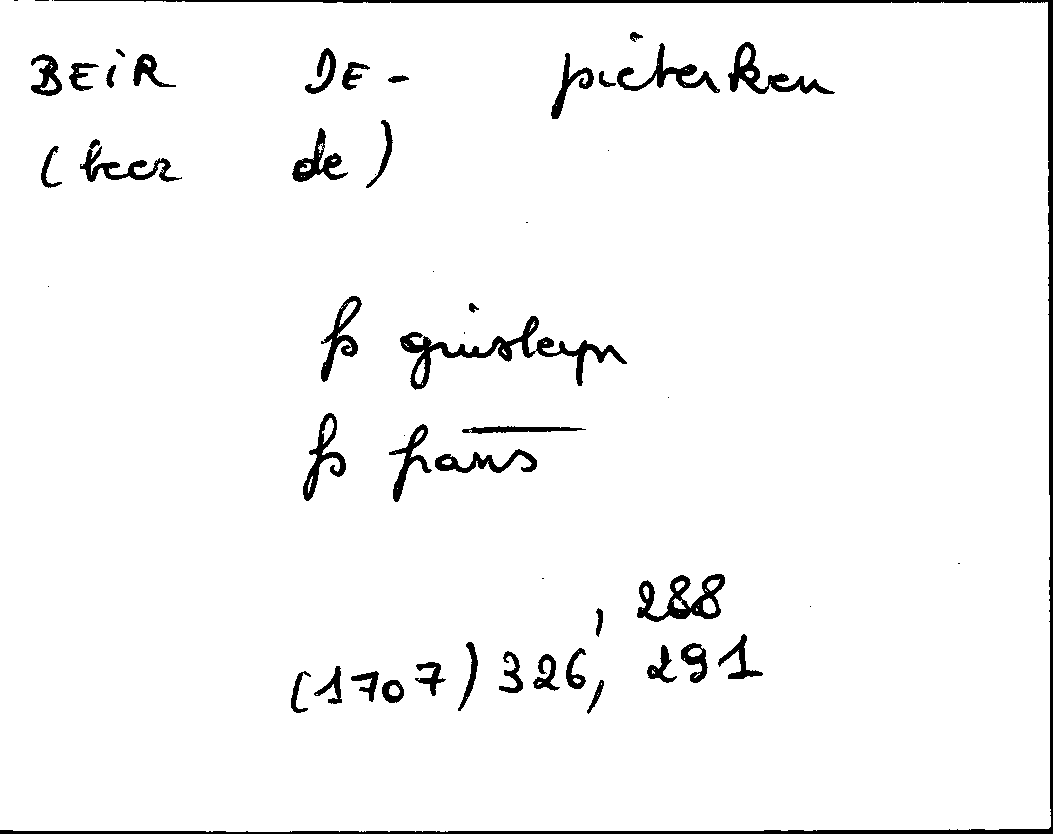 BEIR DE - pieterken
(beer de)
fs guisleyn
fs frans
, 288
(1707) 326, 291